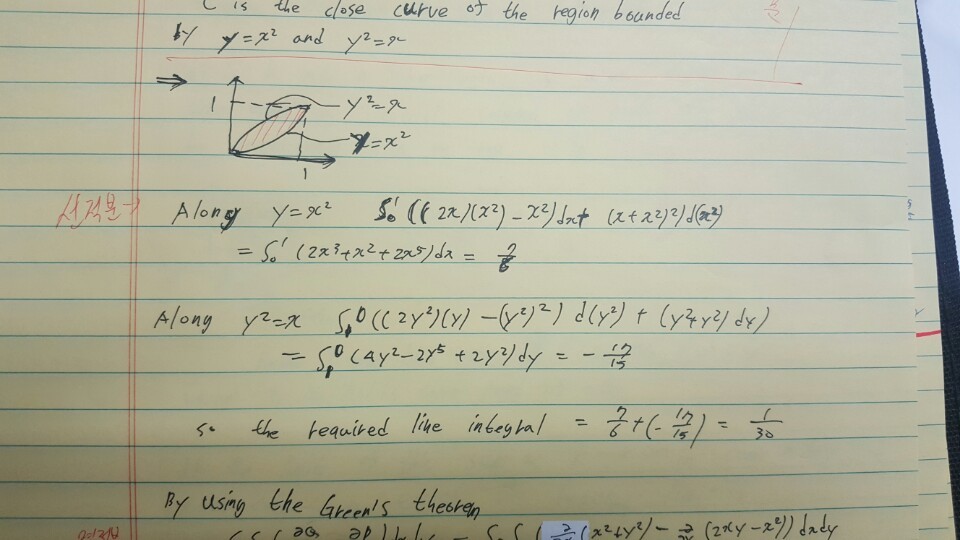 C is the close curve of the region bounded
by y=x² and y²=x
⇒
1
y²=x
y=x²
1
1
선적분→
Along y=x² ∫₀¹ ((2x)(x²)-x²)dx+ (x+x²)²)d(x²)
= ∫₀¹ (2x³+x²+2x⁵)dx = 7/6
Along y²=x ∫₁⁰ ((2y²)(y) -(y²)²) d(y²) + (y²+y²) dy)
= ∫₁⁰ (4y²-2y⁵ +2y²)dy = - 17/15
so the required line integral = 7/6+(-17/15) = 1/30
By using the Green's theorem
(x²+y²) - (2xy-x²)) dxdy